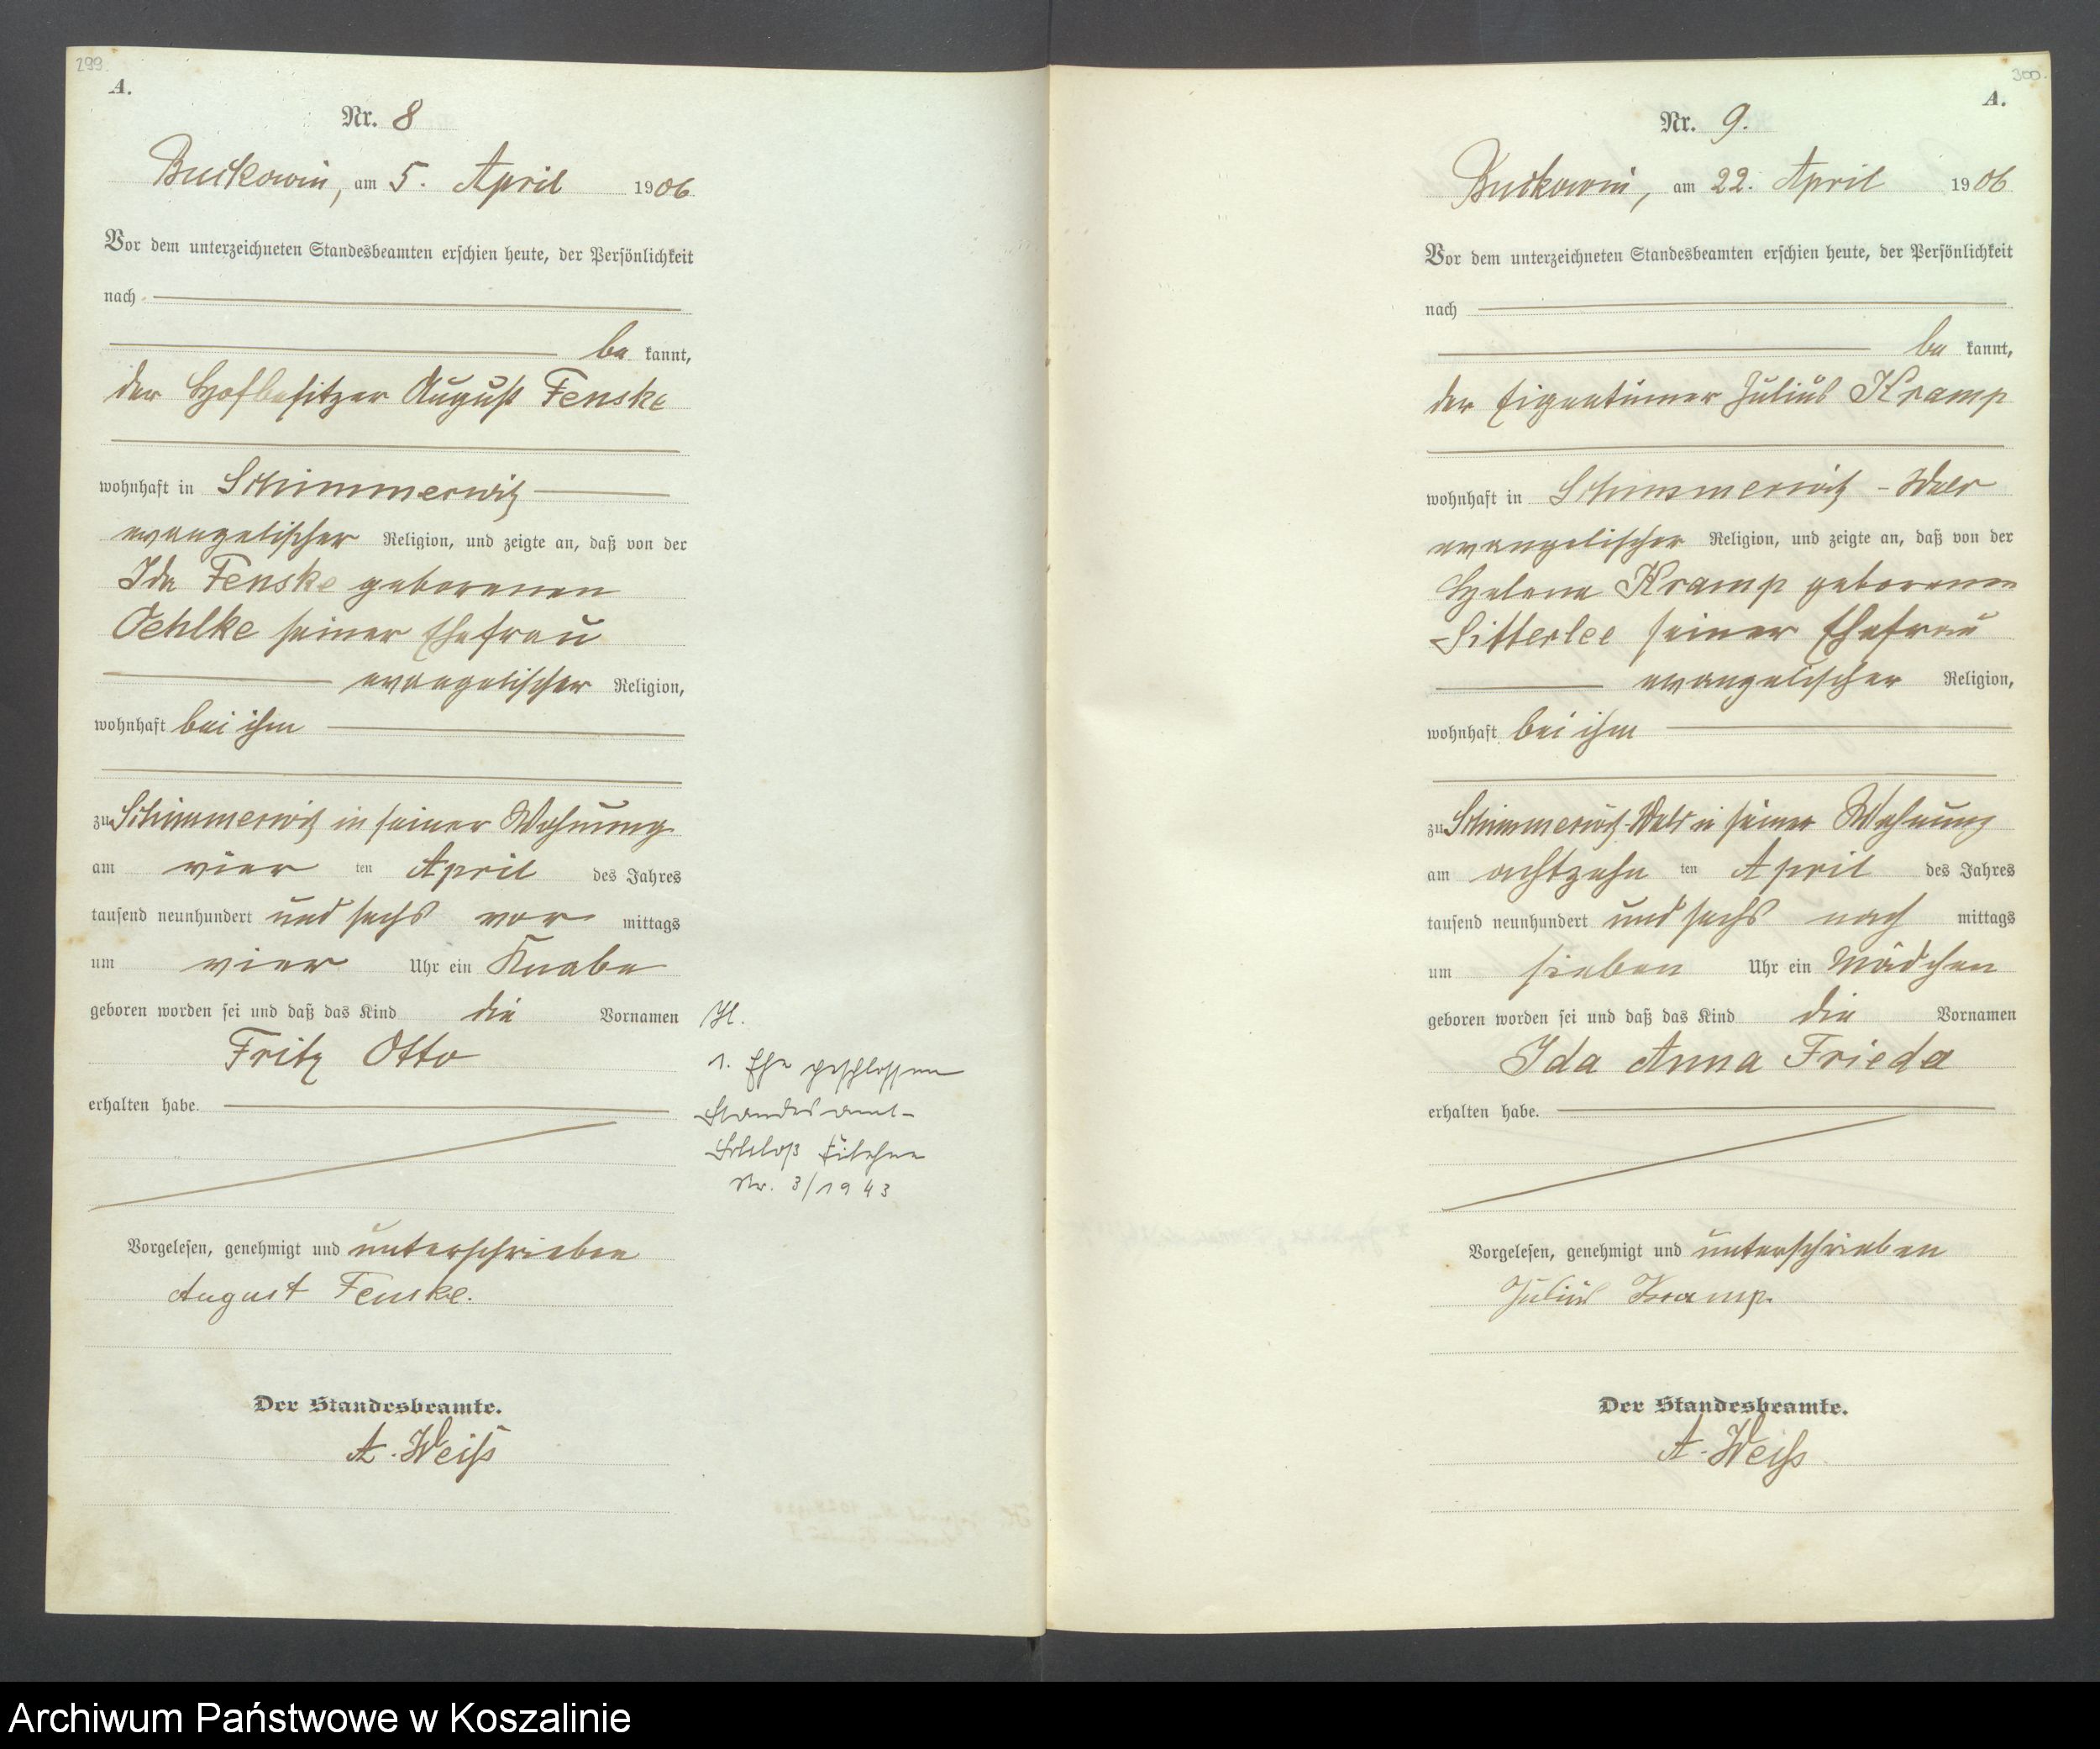 299.
A.
Nr. 8
Buckowin, am 5. April 1906
Vor dem unterzeichneten Standesbeamten erschien heute, der Persönlichkeit
nach
be kannt,
der Hofbesitzer August Fenske
wohnhaft in Schimmerwitz
evangelischer Religion, und zeigte an, daß von der
Ida Fenske geborenen
Oehlke seiner Ehefrau
evangelischer Religion,
wohnhaft bei ihm
zu Schimmerwitz in seiner Wohnung
am vier ten April des Jahres
tausend neunhundert und sechs vor mittags
um vier Uhr ein Knabe
geboren worden sei und daß das Kind die Vornamen
Fritz Otto
erhalten habe.
Vorgelesen, genehmigt und unterschrieben
August Fenske.
Der Standesbeamte.
A. Weiß
Hl.
1. Ehe geschlossen
Standesamt-
Schloß Filehne
Nr. 3/1943
300.
A.
Nr. 9.
Buckowin, am 22. April 1906
Vor dem unterzeichneten Standesbeamten erschien heute, der Persönlichkeit
nach
be kannt,
der Eigentümer Julius Kramp
wohnhaft in Schimmerwitz - Wald
evangelischer Religion, und zeigte an, daß von der
Helene Kramp geborenen
Sitterlee seiner Ehefrau
evangelischer Religion,
wohnhaft bei ihm
zu Schimmerwitz-Wald in seiner Wohnung
am achtzehn ten April des Jahres
tausend neunhundert und sechs nach mittags
um sieben Uhr ein Mädchen
geboren worden sei und daß das Kind die Vornamen
Ida Anna Frieda
erhalten habe.
Vorgelesen, genehmigt und unterschrieben
Julius Kramp.
Der Standesbeamte.
A. Weiß
Archiwum Państwowe w Koszalinie